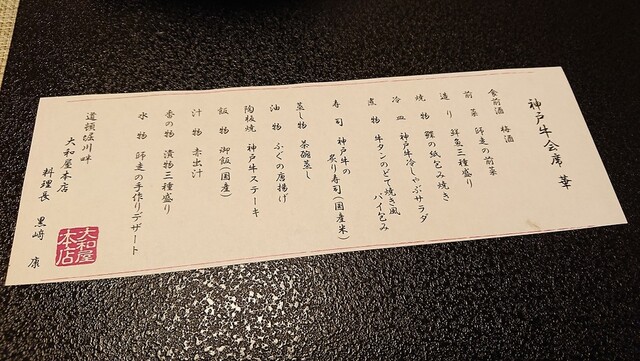 神戸牛会席 華
食前酒 梅酒
前菜 師走の前菜
造り 鮮魚三種盛り
焼物 鰹の紙包み焼き
冷皿 神戸牛冷しゃぶサラダ
煮物 牛タンのどて焼き風
パイ包み
寿司 神戸牛の
炙り寿司(国産米)
蒸し物 茶碗蒸し
油物 ふぐの唐揚げ
陶板焼 神戸牛ステーキ
飯物 御飯(国産)
汁物 赤出汁
香の物 漬物三種盛り
水物 師走の手作りデザート
道頓堀川畔
大和屋本店
料理長 黒崎 康
大和屋
本店